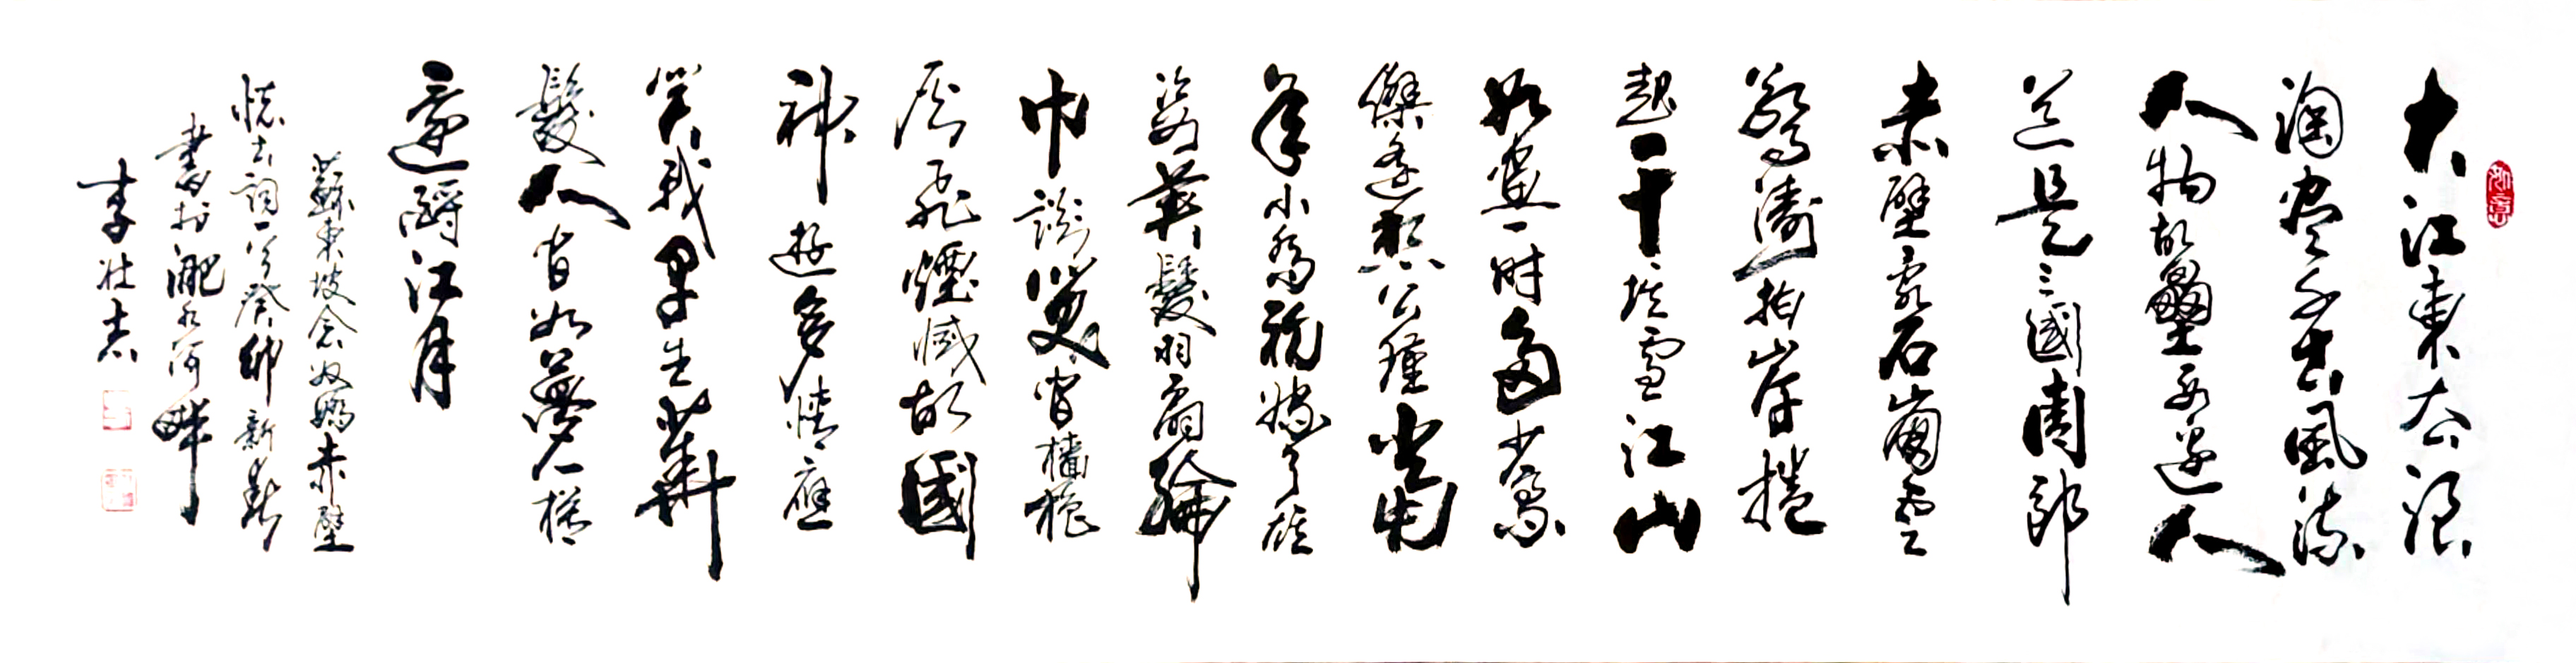 如意
大江東去浪
淘盡千古風流
人物故壘西邊人
道是三國周郎
赤壁亂石崩雲
驚濤拍岸捲
起千堆雪江山
如畫一時多少豪
傑遙想公瑾當
年小喬初嫁了雄
姿英發羽扇綸
巾談笑間檣櫓
灰飛煙滅故國
神遊多情應
笑我早生華
髮人間如夢一樽
還酹江月
蘇東坡念奴嬌赤壁
懷古詞一首癸卯新春
書於淝水河畔
李壯志